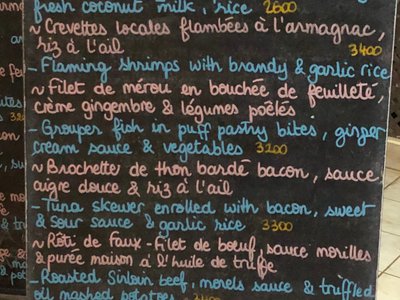 fresh coconut milk, rice 2600
~ Crevettes locales flambées à l'armagnac,
riz à l'ail 3400
- Flaming shrimps with brandy & garlic rice
~ Filet de mérou en bouchée de feuilleté,
crème gingembre & légumes poêlés
- Grouper fish in puff pastry bites, ginger
cream sauce & vegetables 3200
~ Brochette de thon bardé bacon, sauce
aigre douce & riz à l'ail
- Tuna skewer enrolled with bacon, sweet
& sour sauce & garlic rice 3300
~ Rôti de Faux-Filet de boeuf, sauce morilles
& purée maison à l'huile de truffe
- Roasted Sirloin beef, morels sauce & truffled
oil mashed potatoes